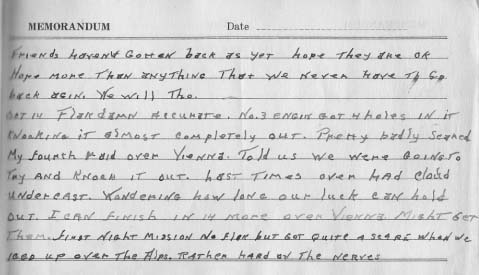 MEMORANDUM Date
Friends haven't Gotten back as yet hope They are OK
Hope more Than anything That we never have To Go
back agin. We will Tho.
Oct 14 Flak damn accurate. No. 3 Engin Got 4 holes in it
Knoking it almost completely out. Pretty badly Scared
My fourth Raid over Vienna. Told us we were Going To
Try and Knock it out. Last Times over had Cloud
undercast. Wondering how long our luck can hold
out. I can finish in 14 more over Vienna Might Get
Them. First Night Mission No Flak but Got quite a scare when we
iced up over The Alps. Rather hard on The Nerves